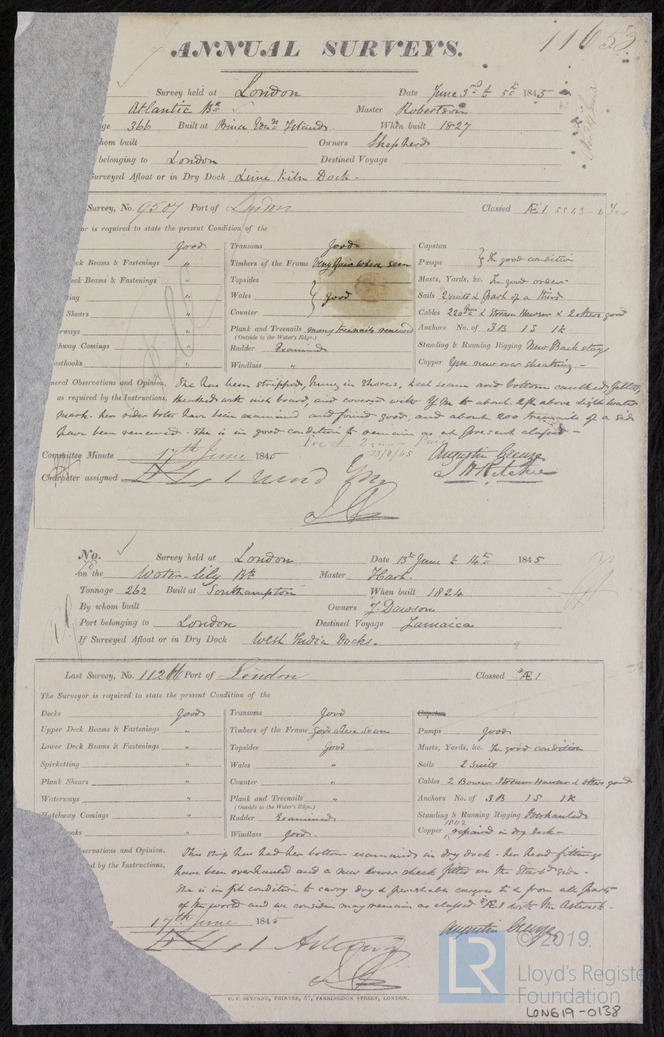 ANNUAL SURVEYS.
Survey held at London Date June 3rd to 5th 1845
Atlantic Bk Master Robertson
366 Built at Prince Edwd Islands When built 1827
hom built Owners Shepherd
belonging to London Destined Voyage
Surveyed Afloat or in Dry Dock Lime Kiln Dock
Survey, No. 9507 Port of London Classed Æ1
or is required to state the present Condition of the
Good Transoms Good Capstan
ck Beams & Fastenings " Timbers of the Frame Very fair where seen Pumps In good condition
eck Beams & Fastenings " Topsides Masts, Yards, &c. In good order
ing " Wales good Sails 2 suits & part of a third
Shears " Counter Cables
rways " Plank and Treenails many treenails renewed Anchors No. of 3B 1S 1K
(Outside to the Water's Edge.)
hway Comings " Rudder Examined Standing & Running Rigging New Back stays
asthooks " Windlass " Copper
neral Observations and Opinion, She has been stripped, hung in shores, keel seam and bottom caulked, felted
as required by the Instructions, and covered with Y.M. to about 2 ft above light water
mark. Her sides have been examined and found good, and about 200 treenails of a side
have been renewed. She is in good condition to remain as at present classed
Committee Minute 17th June 1845 Augustin Creuze
Character assigned J. H. Ritchie
No. Survey held at London Date 13th June to 14th 1845
on the Water-lily Bk Master Hart
Tonnage 262 Built at Southampton When built 1824
By whom built Owners J. Dawson
Port belonging to London Destined Voyage Jamaica
If Surveyed Afloat or in Dry Dock West India Docks.
Last Survey, No. Port of London Classed *Æ1
The Surveyor is required to state the present Condition of the
Decks Good Transoms Good Capstan
Upper Deck Beams & Fastenings " Timbers of the Frame Good where seen Pumps Good
Lower Deck Beams & Fastenings " Topsides Good Masts, Yards, &c. In good condition
Spirketting " Wales " Sails 2 Suits
Plank Shears " Counter " Cables 2 Bower Stream Hawser & others good
Waterways " Plank and Treenails " Anchors No. of 3B 1S 1K
(Outside to the Water's Edge.)
Hatchway Comings " Rudder Examined Standing & Running Rigging Overhauled
ooks " Windlass Good Copper 1842 repaired in dry dock
servations and Opinion, This ship has had her bottom examined in dry dock. her head fittings
ed by the Instructions, have been overhauled and a new bower cheek fitted on the Starbd side.
She is in fit condition to carry dry & perishable cargoes to & from all parts
of the world and we consider may remain as classed *Æ1 with the Asterisk
17th June 1845 Augustin Creuze
© 2019.
LR Lloyd's Register
Foundation
LON619-0138